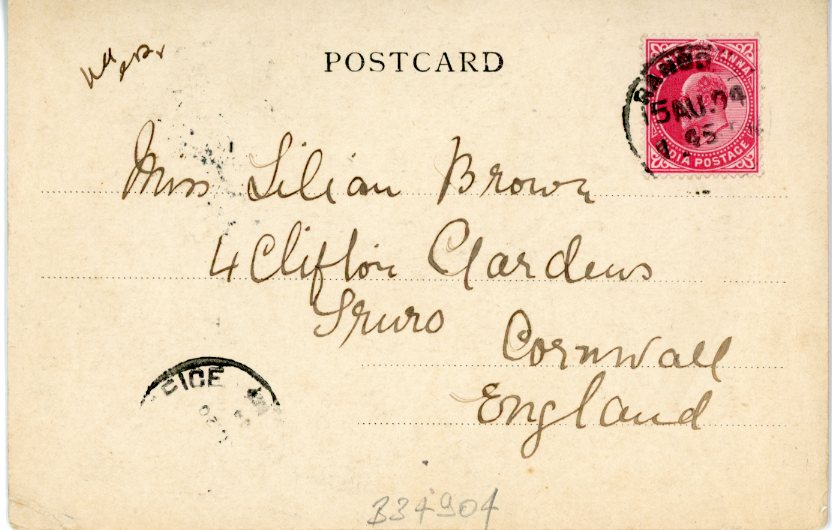 POSTCARD
ANNA
15 AU. 04
INDIA POSTAGE
Miss Lilian Brown
4 Clifton Gardens
Truro
Cornwall
England
B34904